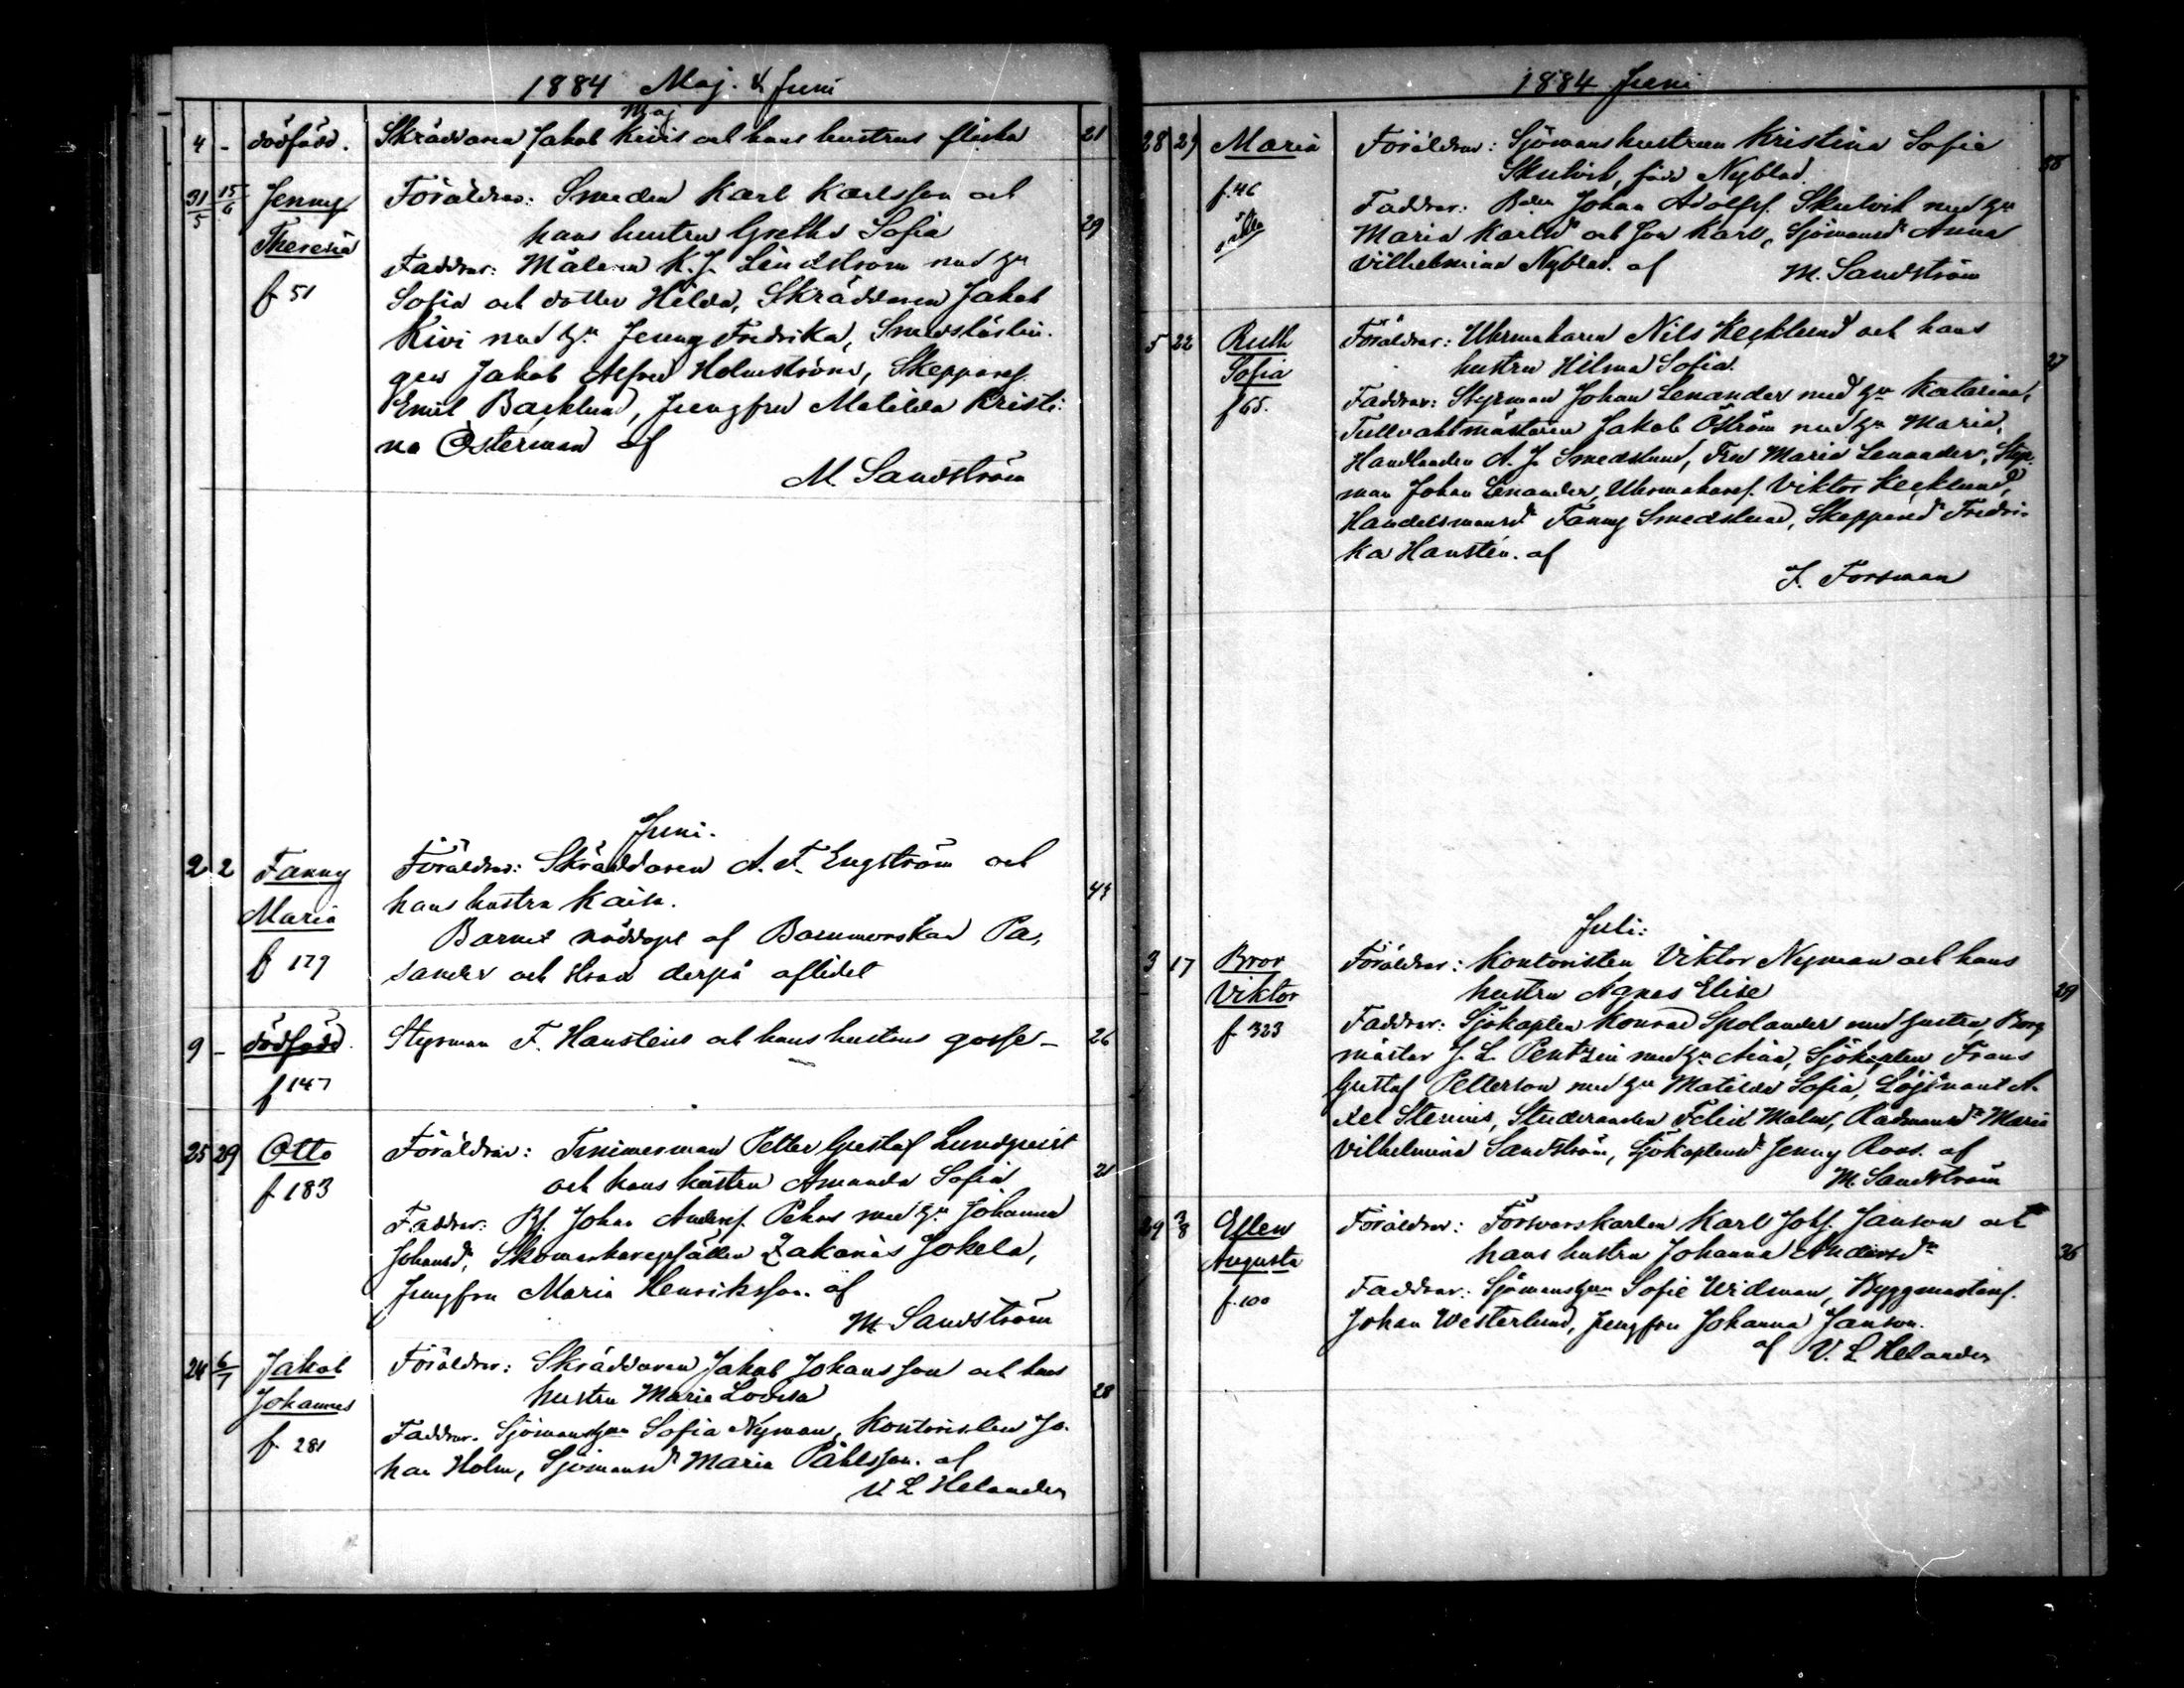 1884 Maj. & Juni
Maj
4 - dödfödd. Skräddaren Jakob Kivis och hans hustrus flicka 21
31/5 15/6 Jenny Föräldrar: Smeden Karl Karlsson och
Theresia hans hustru Gretha Sofia 29
f 51 Faddrar: Målaren K. J. Lindström med hu
Sofia och dotter Hilda, Skräddaren Jakob
Kivi med hu Jenny Fredrika, Smedslärlin-
gen Jakob Alfred Holmström, Skepparef.
Emil Backlund, Jungfru Matilda Kristi-
na Österman af
M. Sandström
Juni.
2 2 Fanny Föräldrar: Skräddaren A. F. Engström och
Maria hans hustru Kaisa. 44
f 179 Barnet nöddöpt af Barnmorskan Pa-
sander och strax derpå aflidet
9 - dödfödd. Styrman F. Hansténs och hans hustrus gosse - 26
f 147
25 29 Otto Föräldrar: Timmerman Petter Gustaf Lundqvist
f 183 och hans hustru Amanda Sofia 21
Faddrar: Johan Andersf. med hu Johanna
Johansdr, Skomakaregesällen Zakarias Jokela,
Jungfru Maria Henriksson. af
M. Sandström
24 6/7 Jakob Föräldrar: Skräddaren Jakob Johansson och hans
Johannes hustru Maria Lovisa 28
f. 281 Faddrar. Sjömanshun Sofia Nyman, Kontoristen Jo-
han Holm, Sjömansdr Maria Påhlsson. af
V. L Helander
1884 Juni
28 29 Maria Föräldrar: Sjömanshustrun Kristina Sofia
f. 46 Skutvik, född Nyblad.
Faddrar: Johan Adolfsf. Skutvik med hu
Maria Karlsdr och son Karl, Sjömansdr Anna
Vilhelmina Nyblad. af M. Sandström
5 22 Ruth Föräldrar: Uhrmakaren Nils Kecklund och hans
Sofia hustru Hilma Sofia. 27
f 65. Faddrar: Styrman Johan Lenander med hu Katarina,
Tullvaktmästaren Jakob Öström med hu Maria,
Handlanden A. J. Smedslund, Fru Maria Lenander, Styr-
man Johan Lenander, Uhrmakaref. Viktor Kecklund,
Handelsmansdr Fanny Smedslund, Skepparedr Fredri-
ka Hanstén. af
J. Forsman
Juli:
3 17 Bror Föräldrar: Kontoristen Viktor Nyman och hans
Viktor hustru Agnes Elise 29
f. 323 Faddrar: Sjökapten Konrad Spolander med hustru, Borg-
mästar J. L. Pentzin med hu Aina, Sjökapten Frans
Gustaf Petterson med hu Matilda Sofia, Löjtnant A-
xel Stenius, Studeranden Felix Malm, Rådmansdr Maria
Vilhelmina Sandström, Sjökaptensdr Jenny Roos. af
M. Sandström
29 3/8 Ellen Föräldrar: Försvarskarlen Karl Johf. Janson och
Augusta hans hustru Johanna Andersdr 36
f. 100 Faddrar: Sjömanshun Sofie Widman, Byggmästaref.
Johan Westerlund, Jungfru Johanna Janson.
af V. L Helander